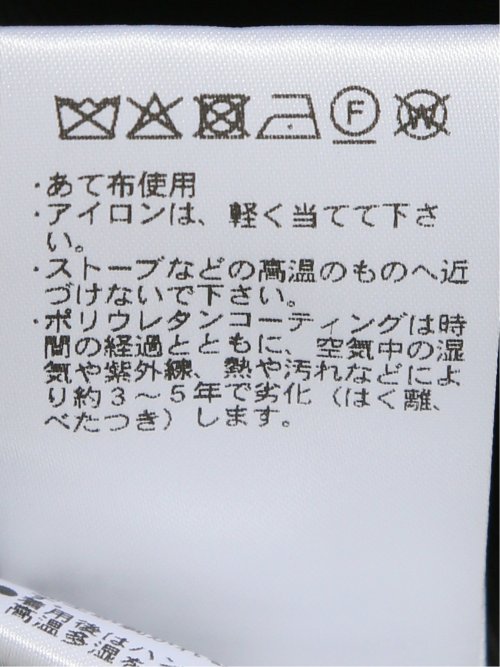 F W
・あて布使用
・アイロンは、軽く当てて下さ
い。
・ストーブなどの高温のものへ近
づけないで下さい。
・ポリウレタンコーティングは時
間の経過とともに、空気中の湿
気や紫外線、熱や汚れなどによ
り約3～5年で劣化(はく離、
べたつき)します。
●着用後はハン
高温多湿を